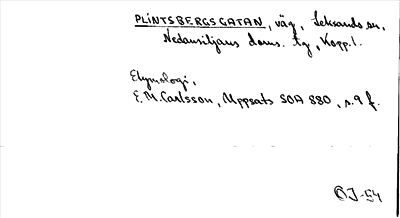 PLINTSBERGSGATAN, väg, Leksands sn,
Nedansiljans doms. tg, Kopp.l.
Etymologi,
E.M. Carlsson, Uppsats SOA 880, s. 9 f.
OJ-54